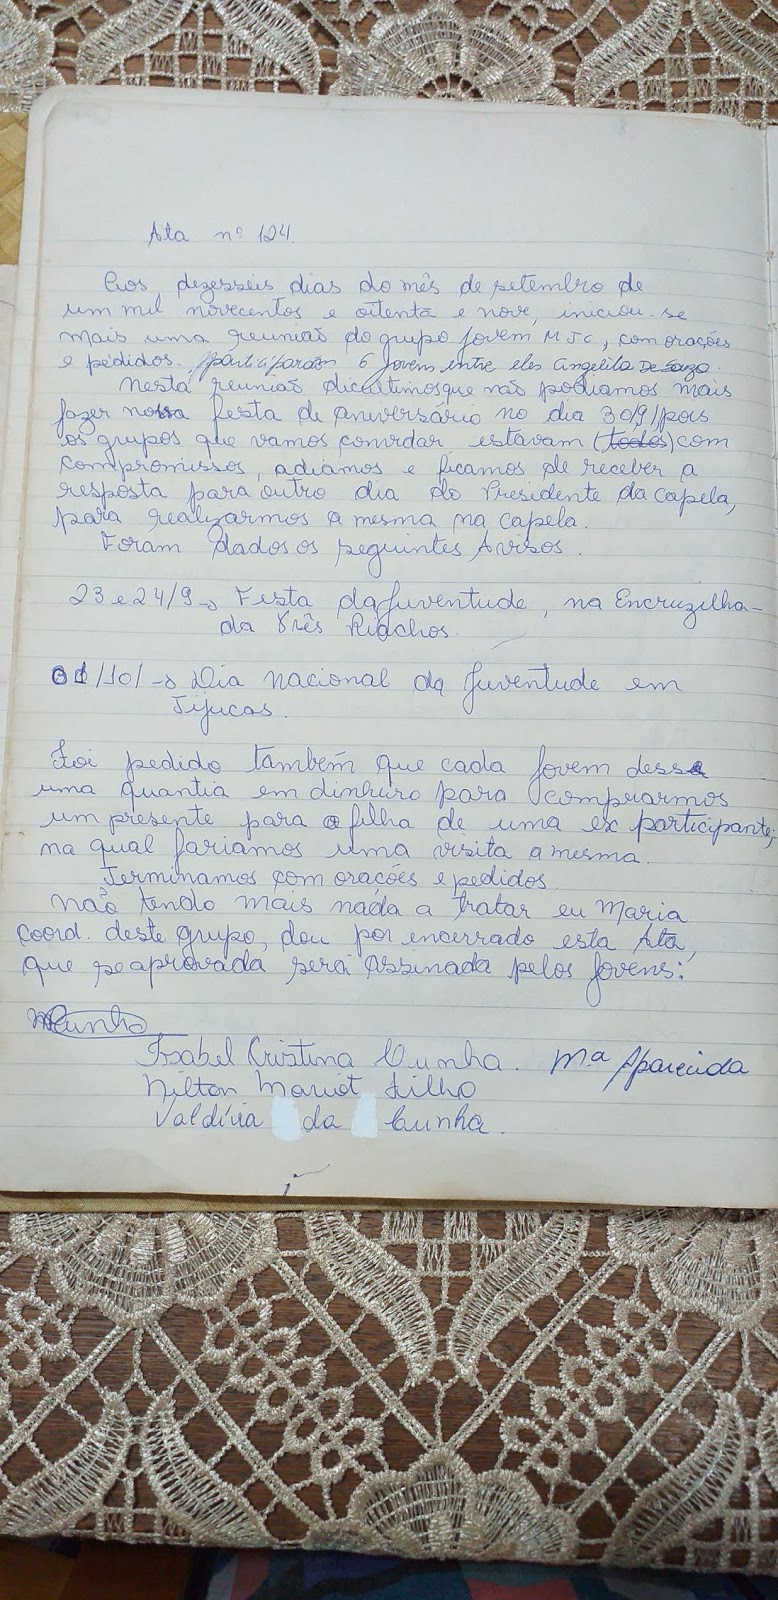 Ata nº 124.
Aos, dezesseis dias do mês de setembro de
um mil novecentos e oitenta e nove, iniciou-se
mais uma reunião do grupo jovem MJC, com orações
e pedidos. participarão 6 jovem entre eles Angelita De Souza.
Nesta reunião dicutimos que não podiamos mais
fazer nossa festa de aniversário no dia 30/9/pois
os grupos que vamos convidar, estavam (todos) com
compromissos, adiamos e ficamos de receber a
resposta para outro dia do Presidente da capela,
para realizarmos a mesma na capela.
Foram dados os seguintes Avisos.
23 e 24/9 → Festa da Juventude, na Encruzilha-
da Três Riachos.
01/10/ → Dia nacional da Juventude em
Tijucas.
Foi pedido também que cada jovem desse
uma quantia em dinheiro para comprarmos
um presente para a filha de uma ex participante;
na qual fariamos uma visita a mesma.
Terminamos com orações e pedidos.
Não tendo mais nada a tratar eu Maria
coord. deste grupo, dou por encerrado esta Ata,
que se aprovada será assinada pelos jovens:
MCunha
Isabel Cristina Cunha. Mª Aparecida
Nilton Mariot Filho
Valdívia da Cunha.